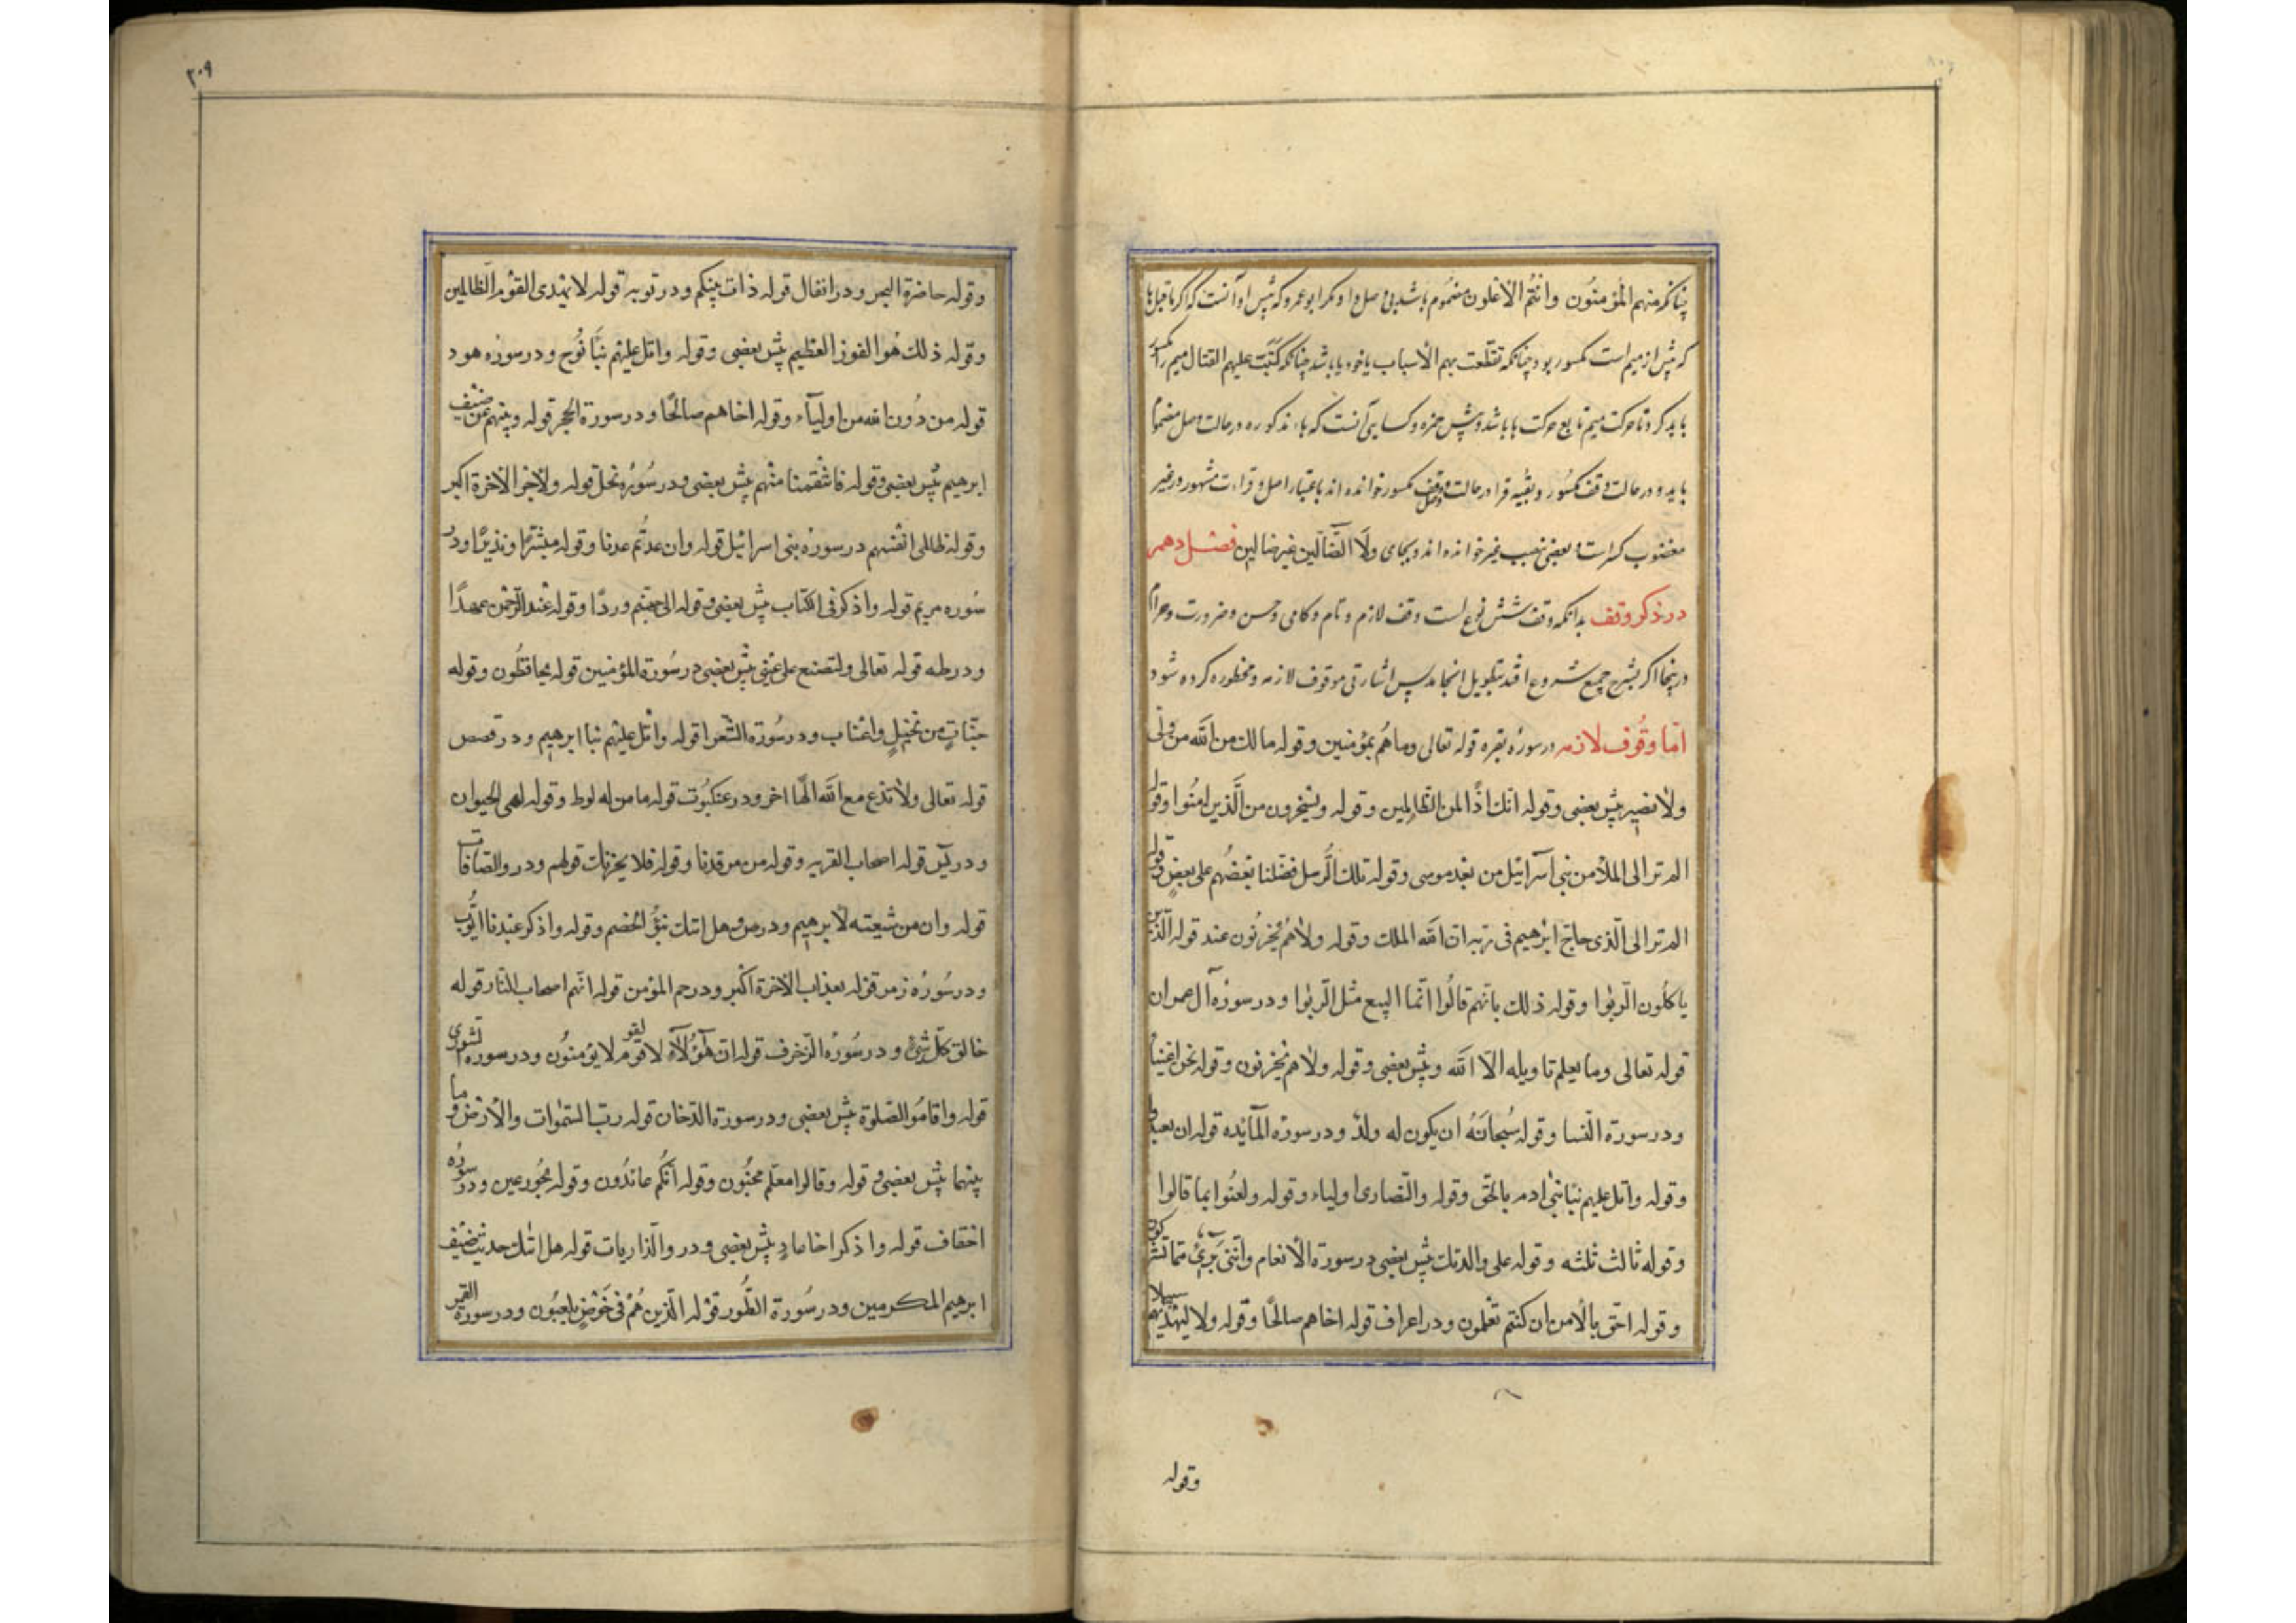 چنانکه منهم المؤمنون وانتم الاعلون مضموم باشد بی وصل او مکر ابو عمرو که پیش او آنست که اکر ماقبل ها
که پیش از میم است مکسور بود چنانکه تقطعت بهم الأسباب یا خود یا باشد چنانکه کتبت علیهم القتال میم را کسر
باید کرد تا حرکت میم تابع حرکت ها باشد و پیش حمزه و کسایی آنست که هاء مذکوره در حالت وصل مضموم
باید و در حالت وقف مکسور و بقیه قرا در حالت وقف وصل مکسور خوانده اند باعتبار اصل و قراءت مشهور در غیر
مغضوب کسر است و بعضی بنصب غیر خوانده اند و بجای ولا الضآلین غیر ضالین فصل دهم
در ذکر وقف بدانکه وقف شش نوع است وقف لازم و تام و کافی و حسن و ضرورت و حرام
در ینجا اکر بشرح جمیع شروع افتد بتطویل انجامد پس اشارتی بوقوف لازمه و محظوره کرده شود
امّا وقُوف لازمه در سورهٔ بقره قوله تعالی وما هُم بمؤمنین وقوله مالك من الله من ولی
ولا نصیر پیش بعضی وقوله انك اذًا لمن الظالِمین وقوله ویسخرون من الّذین امنُوا وقوله
الم تر الی الملأ من بنی اسرآئیل من بعد موسی وقوله تلك الرُّسل فضّلنا بعضُهم علی بعضٍ وقوله
الم تر الی الّذی حاجّ ابرٰهیم فی ربه ان الله الملك وقوله ولا هُم یحزنُون عند قوله الّذین
یاکلُون الرّبوٰا وقوله ذلك بانّهم قالُوا انّما البیع مثل الرّبوٰا ودر سورهٔ آل عمران
قوله تعالی وما یعلم تاویله الاّ الله وپیش بعضی وقوله ولا هم یحزنون وقوله نحن اغنیآ
ودر سورة النسا وقوله سُبحانَهُ ان یکون له ولدٌ ودر سورة المآئده قوله ان تعتدوا
وقوله واتل علیهم نبأ ابنی ادم بالحق وقوله والنّصاری اولیاء وقوله ولعنُوا بما قالوا
وقوله ثالث ثلثه وقوله علی والدتك پیش بعضی در سورة الأنعام وانّنی بریٓءٌ ممّا تشرکون
وقوله احقّ بالأمن ان کنتم تعلمون ودر اعراف قوله اخاهم صالحًا وقوله ولا لیهدیهم سبیلا
وقوله
٢٠٩
وقوله حاضرة البحر ودر انفال قوله ذات بینکم ودر توبه قوله لا یهدی القوم الظّالمین
وقوله ذلك هُو الفوز العظیم پیش بعضی وقوله واتل علیهم نبَأ نُوح ودر سورهٔ هود
قوله من دُون الله من اولیآء وقوله اخاهم صالحًا ودر سورة الحجر قوله وبنهم عن ضیف
ابرهیم پیش بعضی وقوله فانتقمنا منهم پیش بعضی ودر سُورهٔ نحل قوله ولأجر الآخرة اکبر
وقوله ظالمی انفسهم در سورهٔ بنی اسرائیل قوله وان عدتُّم عدنا وقوله مبشّرًا ونذیرًا ودر
سُوره مریم قوله واذکر فی الکتاب پیش بعضی وقوله الی جهنّم وردًا وقوله عند الرّحمن عهدًا
ودر طه قوله تعالی ولتصنع علی عینی پیش بعضی در سُورة المؤمنین قوله یحافظُون وقوله
جنّاتٍ من نخیلٍ واعناب ودر سُورة الشّعرا قوله واتل علیهم نبا ابرهیم ودر قصص
قوله تعالی ولا تدع مع الله الهًا اخر ودر عنکبُوت قوله فامن له لوط وقوله لهی الحیوان
ودر یٓس قوله اصحاب القریه وقوله من مرقدنا وقوله فلا یحزنك قولهم ودر والصّافات
قوله وان من شیعته لابرهیم ودر ص وهل اتیك نبؤُ الخصم وقوله واذکر عبدنا ایُّوب
ودر سُورهٔ زمر قوله بعذاب الآخرة اکبر ودر حم المؤمن قوله انّهم اصحاب النّار قوله
خالق کلّ شیءٍ ودر سُورة الزّخرف قوله ان هٓؤلآء لقوم لا یؤمنُون ودر سوره الشوری
قوله واقامُوا الصّلوة پیش بعضی ودر سورة الدّخان قوله ربّ السّموات والأرض وما
بینهما پیش بعضی وقوله وقالوا معلّم مجنُون وقوله انّکُم عائدُون وقوله بحُور عین ودر سورهٔ
احقاف قوله واذکر اخا عادٍ پیش بعضی ودر والذّاریات قوله هل اتیك حدیث ضیف
ابرهیم المکرمین ودر سُورة الطُّور قوله الّذین هُم فی خَوضٍ یلعبُون ودر سورة القمر